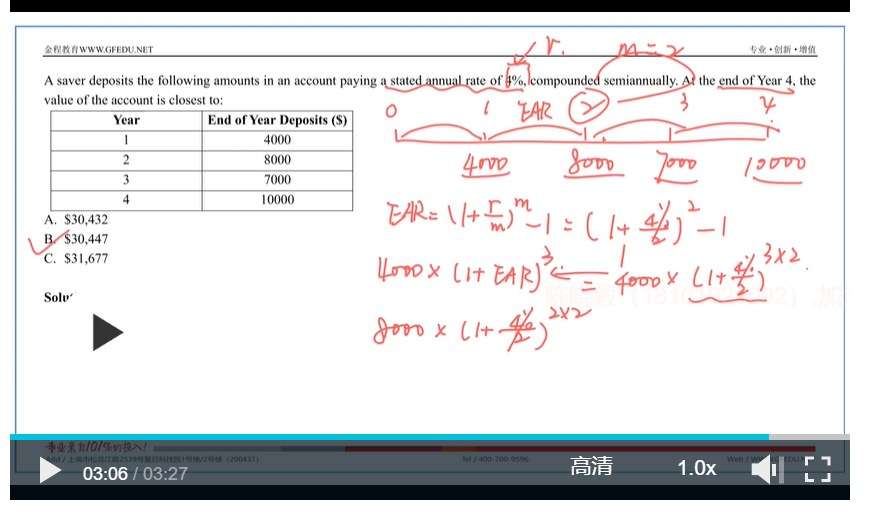 金程教育WWW.GFEDU.NET 专业·创新·增值
r. m=2
A saver deposits the following amounts in an account paying a stated annual rate of 4%, compounded semiannually. At the end of Year 4, the
value of the account is closest to:
Year End of Year Deposits ($)
1 4000
2 8000
3 7000
4 10000
0 1 EAR 2 3 4
4000 8000 7000 10000
A. $30,432
B. $30,447
C. $31,677
EAR = (1+r/m)^m -1 = (1+4%/2)^2 -1
4000 × (1+EAR)^3 = 4000 × (1+4%/2)^3×2
8000 × (1+4%/2)^2×2
Solu
Tel / 400-700-9596
03:06 / 03:27 高清 1.0x